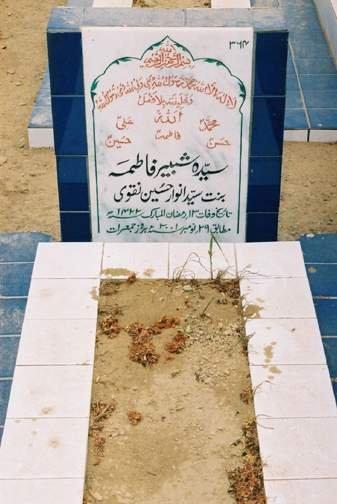 ۳۶۴
بسم اللہ الرحمن الرحیم
لا الہ الا اللہ محمد رسول اللہ علی ولی اللہ وصی رسول اللہ
و خلیفتہ بلا فصل
اللہ
محمدؐ علیؑ
فاطمہؑ
حسنؑ حسینؑ
سیدہ شبیر فاطمہ
بنت سید انوار حسین نقوی
تاریخ وفات ۱۳ رمضان المبارک ۱۴۲۲ ہ
مطابق ۲۹ نومبر ۲۰۰۱ء بروز جمعرات